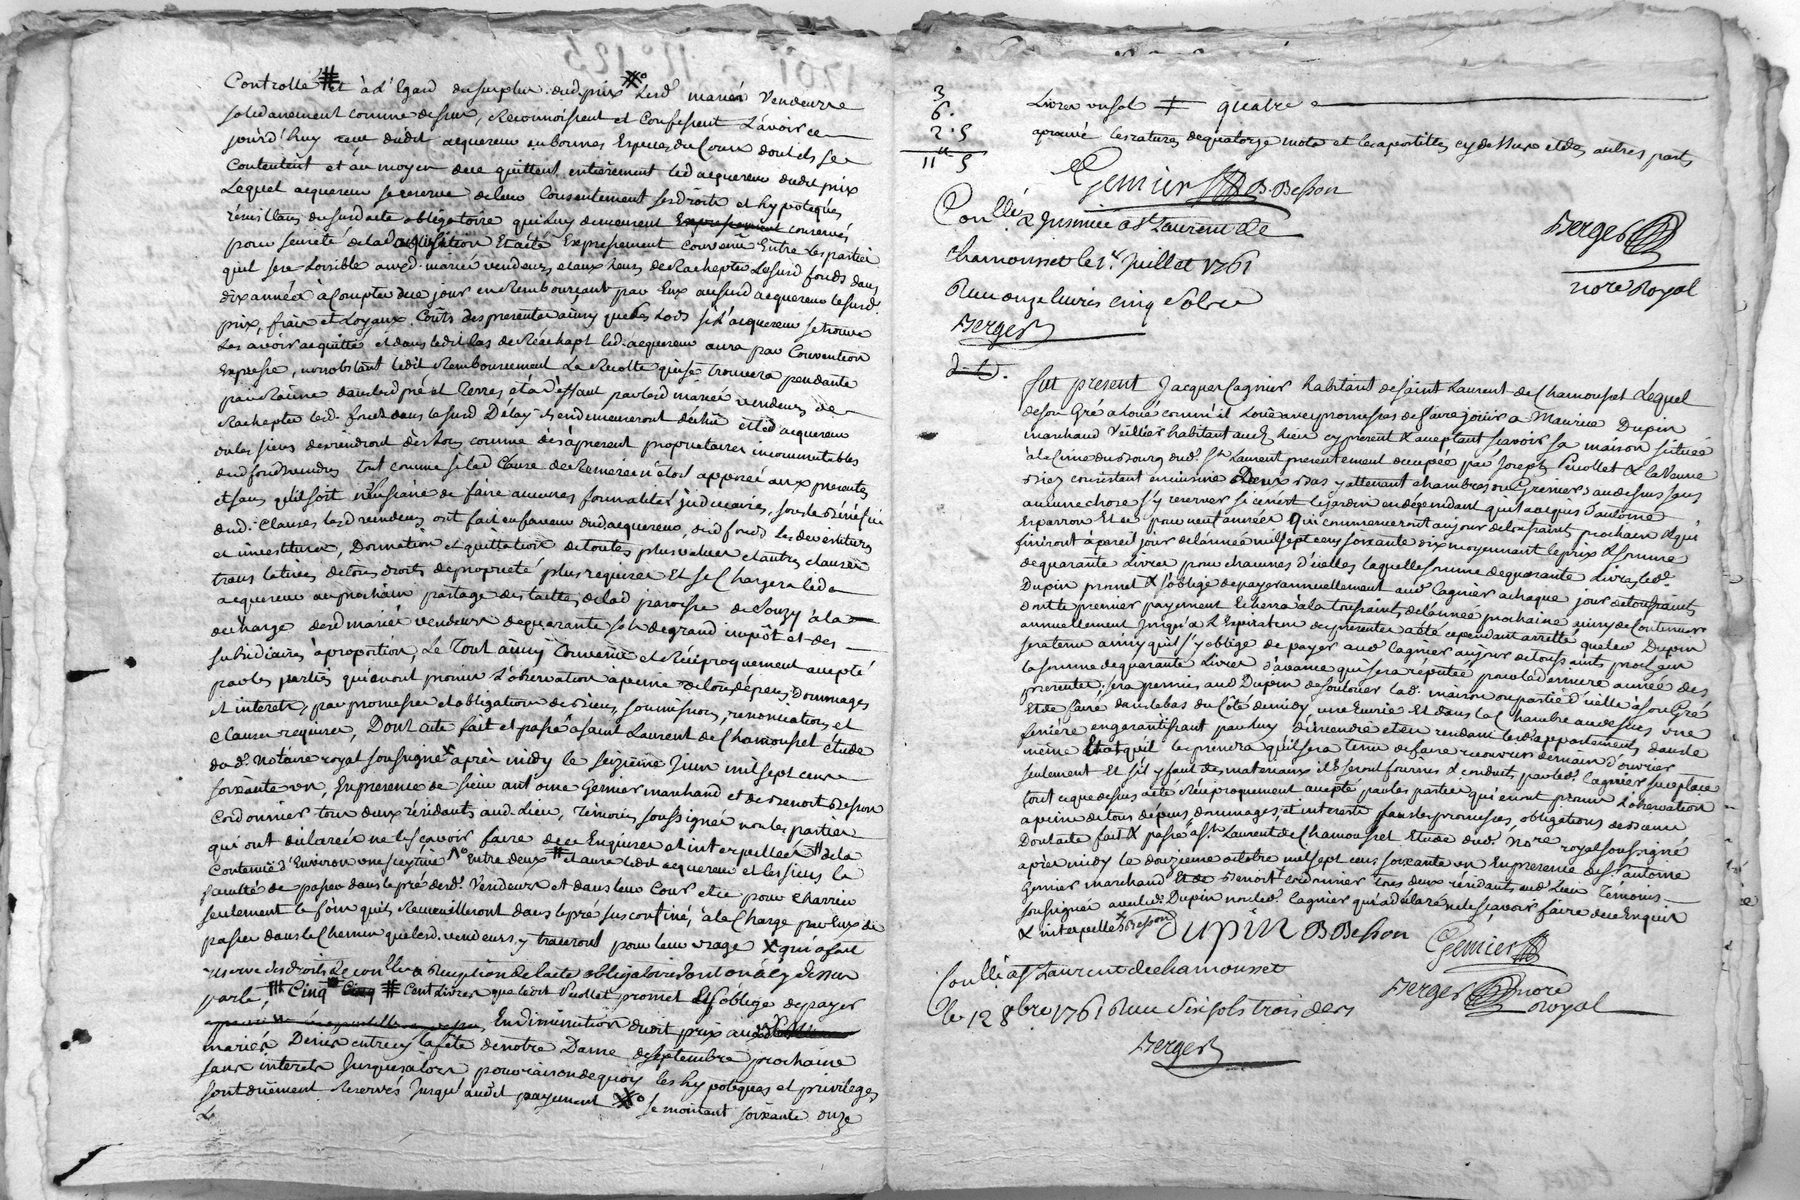 Controllé ⋕ et à l'Egard du surplus dud. prix lesd mariés Vendeurs
solidairement comme dessus, Reconnoissent et Confessent L'avoir ce
jourd'huy reçu dudit acquereur en bonnes Especes du Cours dont ils se
Contentent et au moyen de ce quittent entierement led acquereur dudit prix
Lequel acquereur se reserve de leur Consentement ses droits et hypoteques
résultans du susd acte obligatoire qui luy demeurent Expressement conservés
pour seureté de lad acquisition Et a été Expressement Convenu Entre les parties
quil sera Loisible auxd. mariés vendeurs et aux leurs de Rachepter Lesusd fonds dans
dix années à Compter de ce jour en Remboursant par Eux aususd acquereur le susd.
prix, frais et Loyaux Coûts des presentes ainsy que les Lods si L'acquereur se trouve
Les avoir acquittés et dans ledit Cas de Réachapt led. acquereur aura par Convention
Expresse, nonobstant ledit Remboursement La Recolte qui se trouvera pendante
par Racine dans lesd pré et Terres et à d'effaut par lesd mariés vendeurs de
Rachepter led. fonds dans le susd Délay ils en demeureront déchus et led acquereur
ou les siens deviendront dès lors comme dès àpresent proprietaires incommutables
dud fond vendus tout comme si lad Clause de Remeré n'étoit apposée aux presentes
et sans qu'il soit nécessaire de faire aucunes formalités judiciaires, sous le Bénéfice
dud. Clauses lesd vendeurs ont fait en faveur dud acquereur, dud fonds les devestitures
et investitures, Donnation et quittation de toutes plus values et autres clauses
translatives de tous droits de proprieté plus requises Et se Chargera led
acquereur au prochain partage des tailles de lad paroisse de Souzy à la
décharge desd mariés vendeurs de quarante sols de grand impôt et des
subsidiaires à proportion, Le Tout ainsy Convenu et Réciproquement accepté
par les parties qui en ont promis L'observation à peine de tous dépens, Dommages
et interets, par promesses et obligation de Biens, soumissions, renonciations, et
Clauses requises, Dont acte fait et passé à saint Laurent de Chamousset étude
du d. Notaire royal soussigné après midy le seizieme Juin mil sept cens
soixante un, En presence de sieur antoine Gemier marchand et de Benoit Besson
Cordonnier tous deux résidants aud. Lieu, Témoins soussignés non les parties
qui ont déclarées ne le sçavoir faire de ce Enquises et interpellées ⋕ de la
Contenüe d'Environ une Entre deux ⋕ et aura ledit acquereur et les siens la
faculté de passer dans le pré desd. Vendeurs et dans leur Cour et ce pour charrier
seulement le foin quils Recueuilleront dans le pré sus confiné, à la Charge par Eux de
passer dans le Chemin que lesd. vendeurs y traceront pour leur usage X qui a fait
reserve des droits de Reception de l'acte obligatoire dont on a cy dessus
parlé, Cinq Cinq ⋕ Cent Livres que ledit promet & s'oblige de payer
En diminution dudit prix aux
mariés Denis entre cy la fête de notre Dame de septembre prochaine
sans interets jusques alors pour raison de quoy les hypoteques et privileges
sont duëment Reservés jusqu'audit payement se montant soixante onze
Le
3
6.
2. 5
11 5
Livres un sol ⋕ quatre
aprouvé les ratures de quatorze mots et les apostilles cy dessus et des autres parts
Gemier B. Besson
Berger
nore Royal
Conllé & Insinué à St Laurent de
Chamousset le 1er. Juillet 1761
Reçu onze livres cinq sols
Berger
Fut present Jacques Cagnier habitant de saint Laurent de Chamousset Lequel
de son Gré a Loué comm'il Loüe avec promesses de faire joüir a Maurice Dupin
marchand habitant aud. Lieu cy present & acceptant sçavoir sa maison située
à la Cime du Bourg dud. St Laurent presentement occupée par Joseph & la Veuve
consistant en cuisine Deux Bas y attenant chambres ou Greniers au dessus sans
aucune chose s'y reserver si ce n'est le jardin en dépendant quil a acquis d'antoine
Esparron Et ce pour neuf années qui commenceront au jour de toussaint prochain & qui
finiront à pareil jour de l'année mil sept cens soixante dix moyennant le prix & somme
de quarante Livres pour chacunes d'icelles laquelle somme de quarante Livres led.
Dupin promet & s'oblige de payer annuellement aud Cagnier a chaque jour de toussaints
dont le premier payement Echerra à la toussaints de l'année prochaine ainsy de Continuer
annuellement jusqu'à L'Expiration des presentes a été cependant arretté que led Dupin
sera tenu ainsy quil s'y oblige de payer aud Cagnier au jour de toussaints prochain
la somme de quarante Livres d'avance qui sera réputée pour la derniere année des
presentes, sera permis aud Dupin de soulouer lad. maison ou partie d'icelle à son Gré
Et de faire dans le bas du Côté de midy une Ecurie Et dans la Chambre au dessus une
feniere en garantissant par luy d'incendie et en rendant lesd appartements dans le
même Etat quil les prendra qu'il sera tenu de faire recouvrir de main d'ouvrier
seulement Et s'il y faut des materiaux ils seront fournies & conduits par led. Cagnier sur place
tout ce que dessus a été Réciproquement accepté par les parties qui en ont promis L'observation
a peine de tous dépens, dommages, et interests par les promesses, obligations de Biens
Dont acte fait & passé à St Laurent de Chamousset Etude dud. Nore royal soussigné
après midy le douzieme octobre mil sept cens soixante un En presence de Sr antoine
Gemier marchand Et de Benoit cordonnier tous deux résidants aud. Lieu Témoins
soussignés avec led. Dupin non led. Cagnier qui a déclaré ne le sçavoir faire de ce Enquis
& interpellé Besson
Dupin B Besson Gemier
Berger nore
Royal
Conllé à St Laurent de chamousset
le 12 8bre 1761 Reçu six sols trois den
Berger